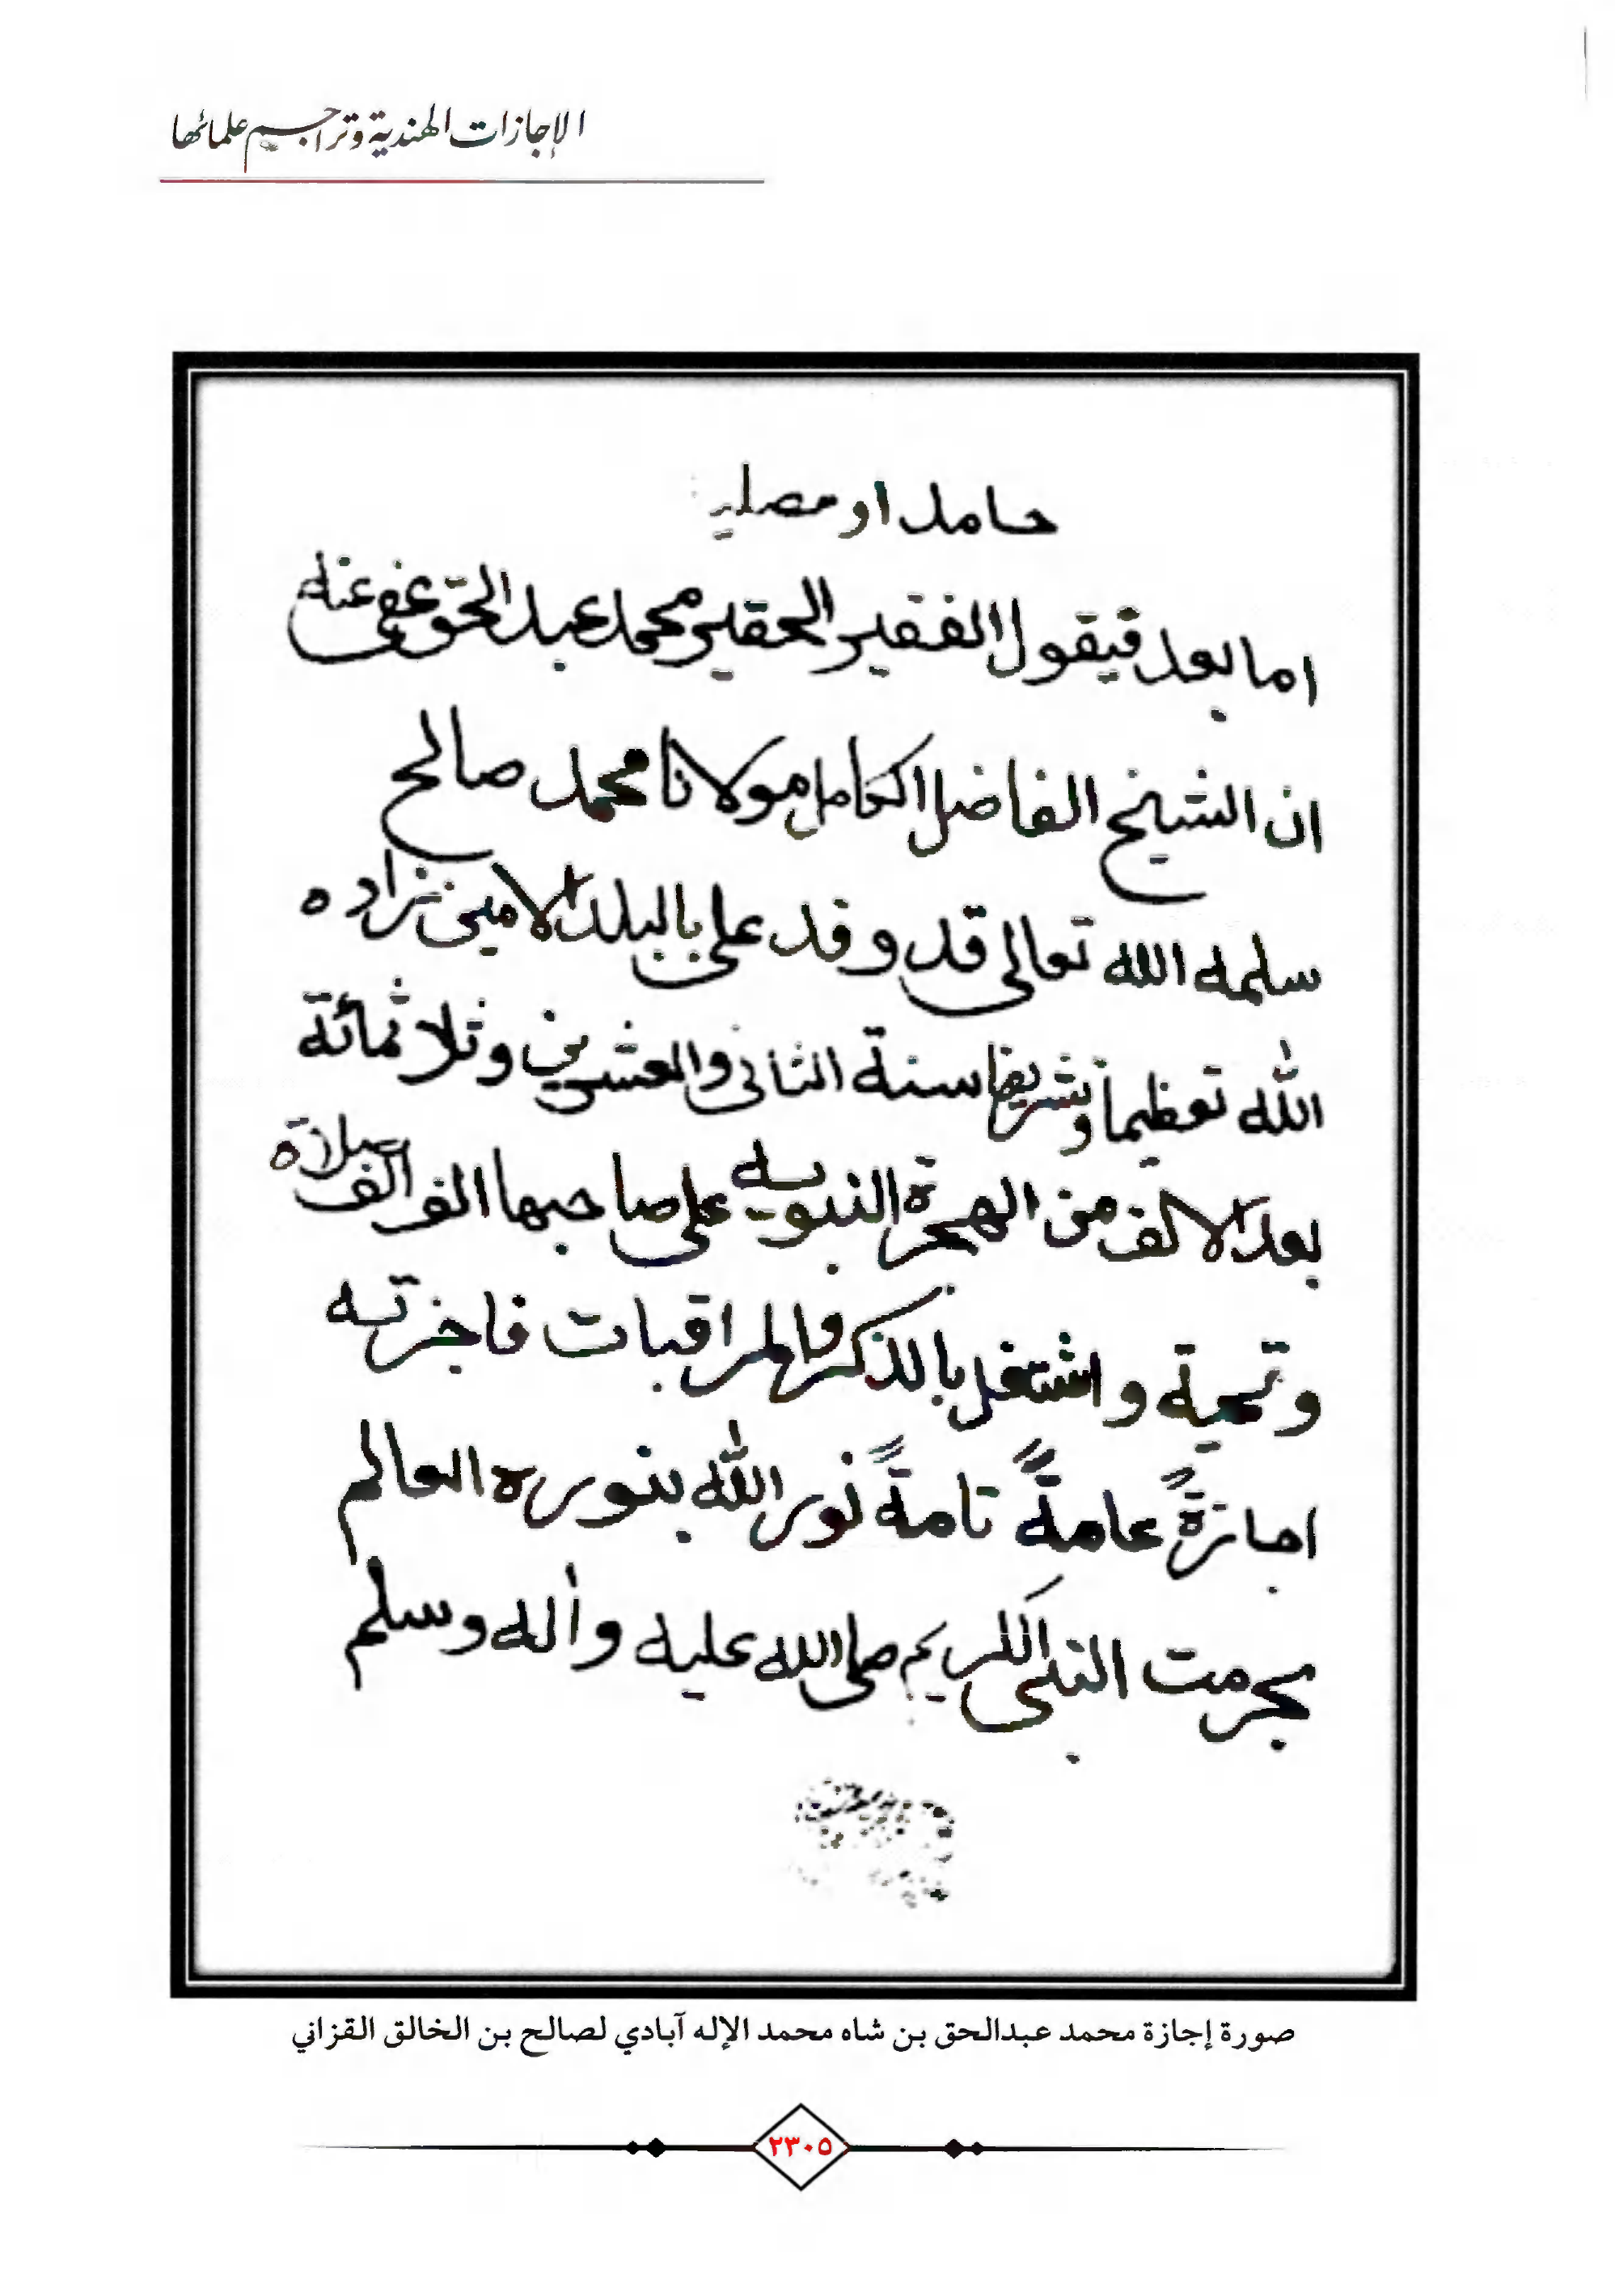 الإجازات الهندية وتراجم علمائها
حامدا ومصليا
اما بعد فيقول الفقير الحقير محمد عبد الحق عفي عنه
ان الشيخ الفاضل الكامل مولانا محمد صالح
سلمه الله تعالى قد وفد علي بالبلد الامين زاده
الله تعظيما وتشريفا سنة الثاني والعشرين وثلاثمائة
بعد الالف من الهجرة النبويه على صاحبها الف الف صلاة
وتحية واشتغل بالذكر والمراقبات فاجزته
اجازةً عامةً تامةً نور الله بنوره العالم
بحرمت النبي الكريم صلى الله عليه وأله وسلم
صورة إجازة محمد عبدالحق بن شاه محمد الإله آبادي لصالح بن الخالق القزاني
٢٣٠٥